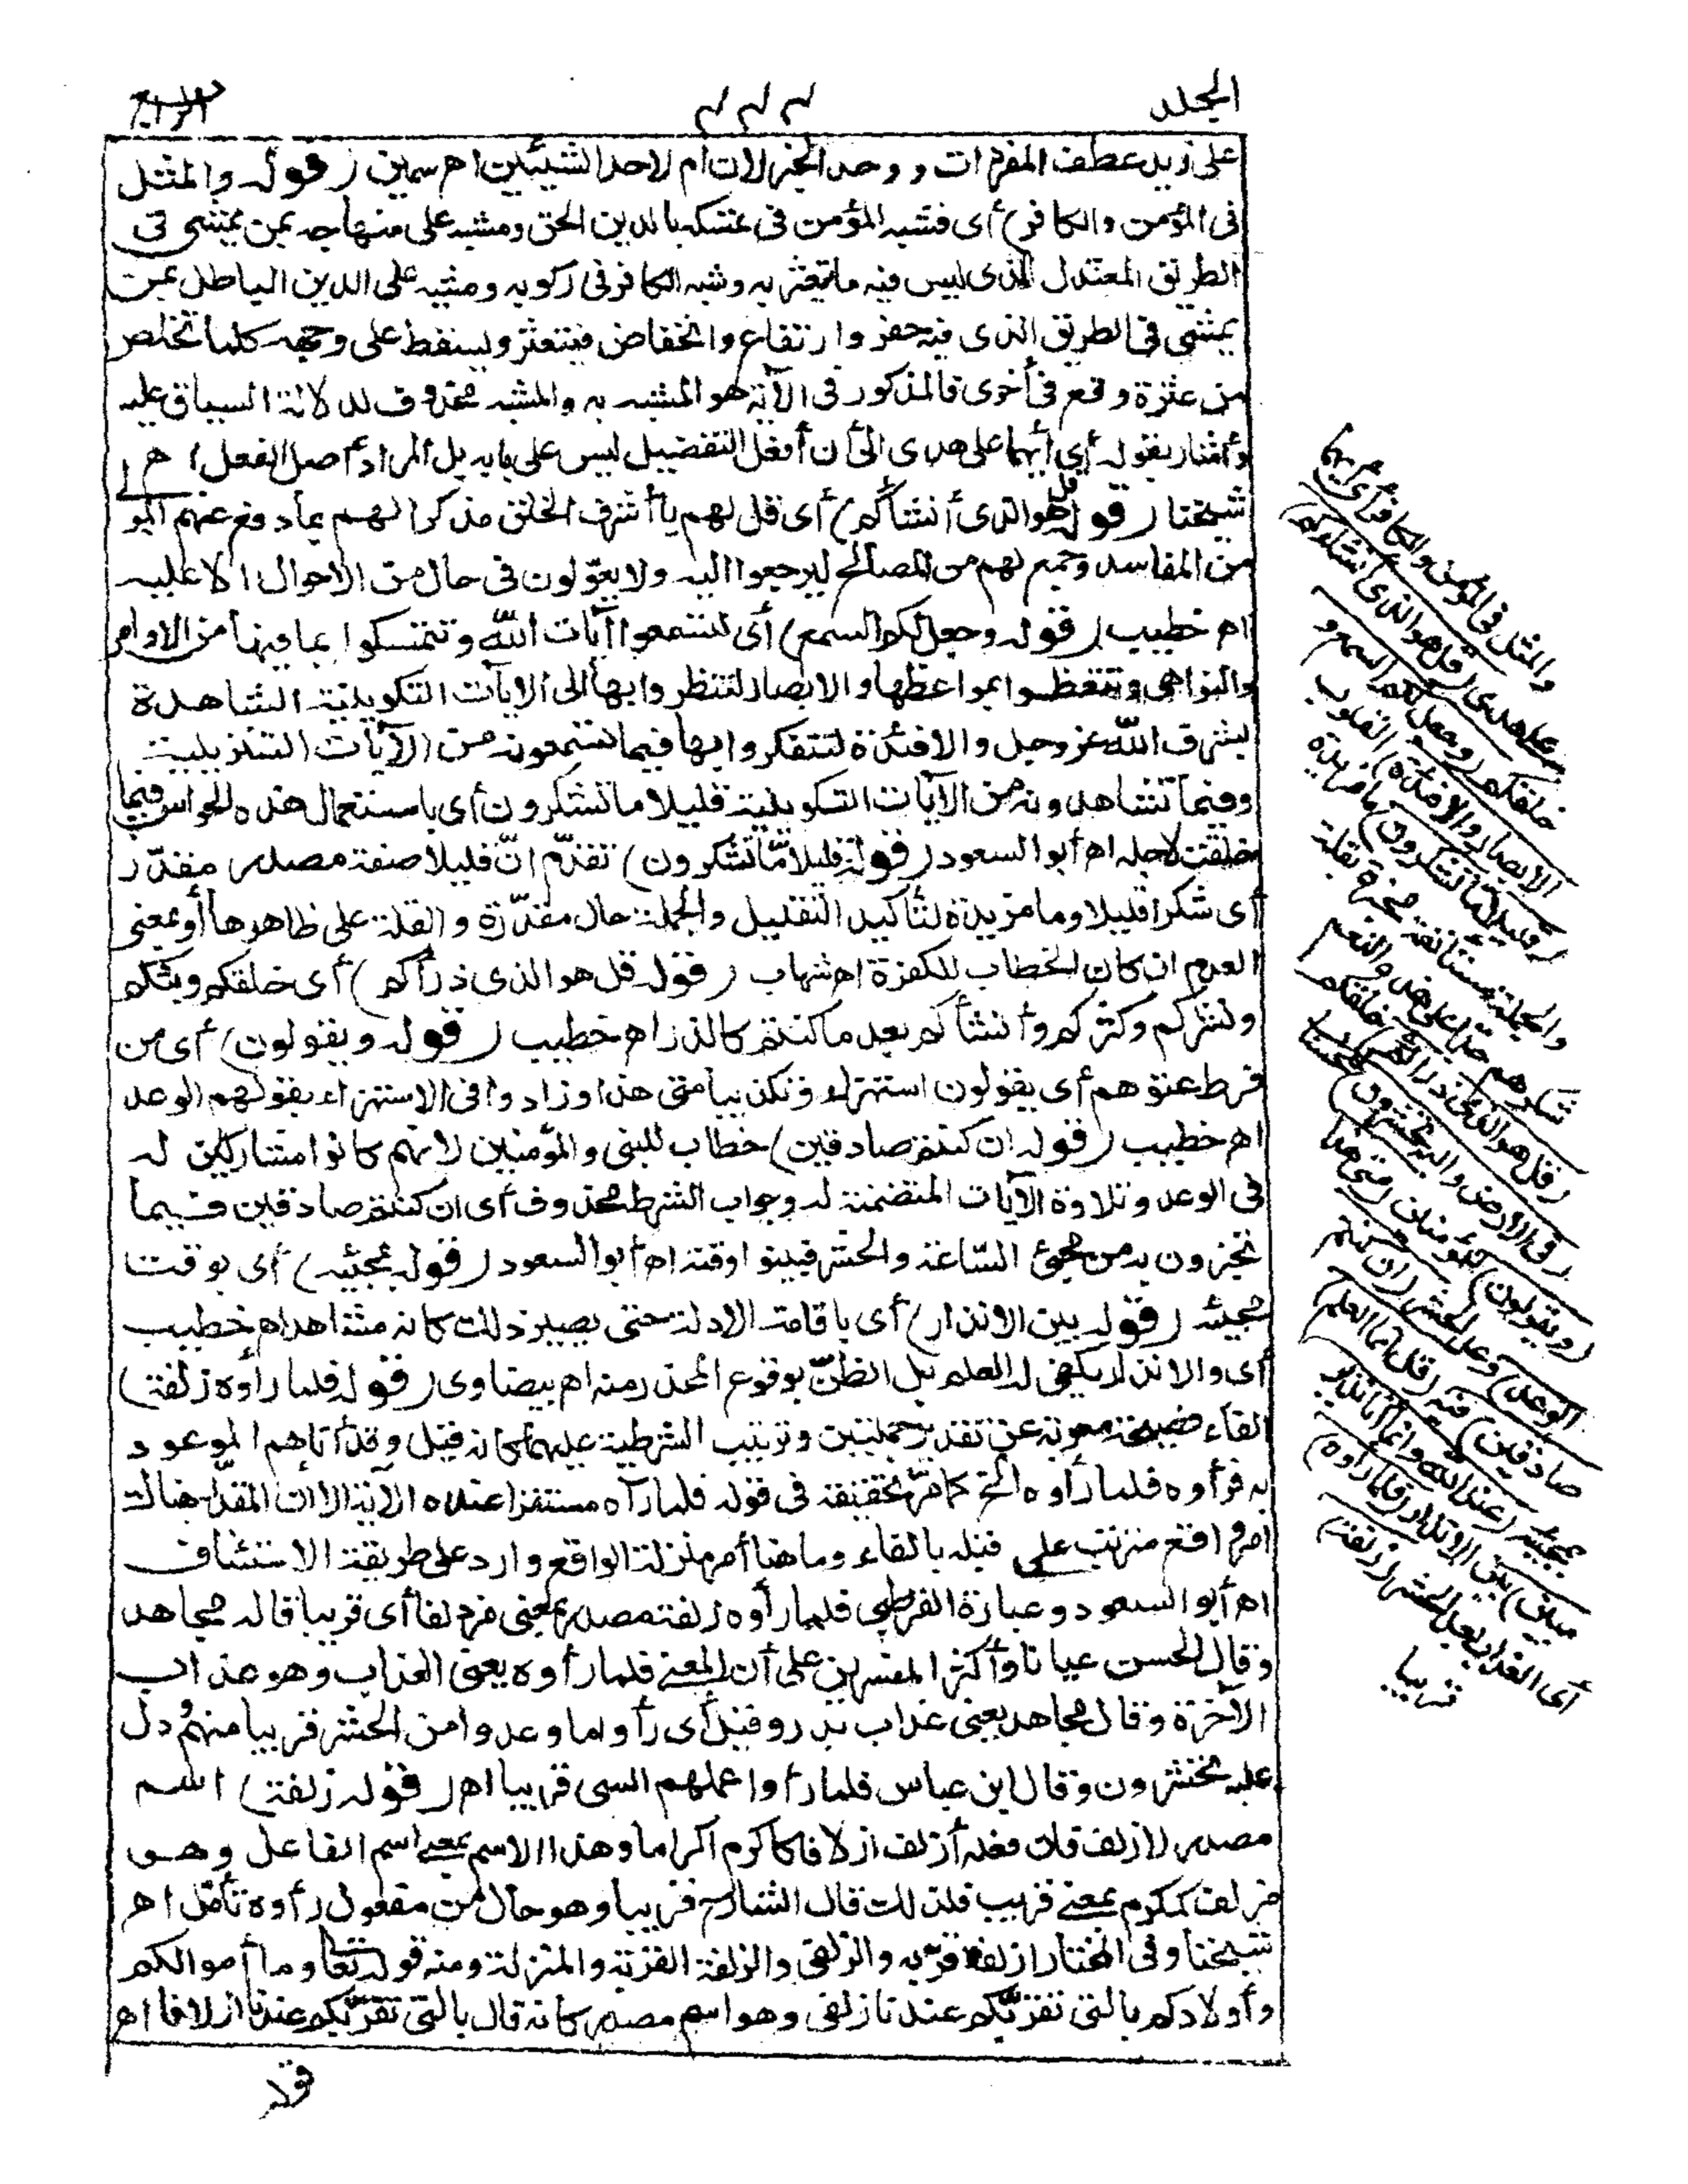 الجلد
٣٧٧
الرابع
على زيد عطف المفردات ووحد الخبر لان أم لاحد الشيئين اهـ سمين (قوله والمثل
فى المؤمن والكافر) أى فشبه المؤمن فى تمسكه بالدين الحق ومشيه على منهاجه بمن يمشى فى
الطريق المعتدل الذى ليس فيه ما يتعثر به وشبه الكافر فى ركوبه ومشيه على الدين الباطل بمن
يمشى فى الطريق الذى فيه حفر وارتفاع وانخفاض فيتعثر ويسقط على وجهه كلما تخلص
من عثرة وقع فى أخرى فالمذكور فى الآية هو المشبه به والمشبه محذوف لدلالة السياق عليه
وأشار بقوله أى أيهما على هدى الى أن أفعل التفضيل ليس على بابه بل المراد أصل الفعل اهـ
شيخنا (قوله قل هو الذى أنشأكم) أى قل لهم يا أشرف الخلق مذكرا لهم بما دفع عنهم المولى
من المفاسد وجمع لهم من المصالح ليرجعوا اليه ولا يعوّلون فى حال من الاحوال الا عليه
اهـ خطيب (قوله وجعل لكم السمع) أى لتسمعوا آيات الله وتتمسكوا بما فيها من الاوامر
والنواهى وتتعظوا بمواعظها والابصار لتنظروا بها الى الآيات التكوينية الشاهدة
بشؤن الله عز وجل والافئدة لتتفكروا بها فيما تسمعونه من الآيات التنزيلية
وفيما تشاهدونه من الآيات التكوينية قليلا ما تشكرون أى باستعمال هذه الحواس فيما
خلقت لاجله اهـ أبو السعود (قوله قليلا مّا تشكرون) تقدّم انّ قليلا صفة مصدر مقدّر
أى شكرا قليلا وما مزيدة لتأكيد التقليل والجملة حال مقدّرة والقلة على ظاهرها أو بمعنى
العدم ان كان الخطاب للكفرة اهـ شهاب (قوله قل هو الذى ذرأكم) أى خلقكم وبثكم
ونشركم وكثركم وأنشأكم بعد ما كنتم كالذر اهـ خطيب (قوله ويقولون) أى من
فرط عنوهم أى يقولون استهزاء وتكذيبا متى هذا وزادوا فى الاستهزاء بقولهم الوعد
اهـ خطيب (قوله ان كنتم صادقين) خطاب للنبى والمؤمنين لانهم كانوا مشاركين له
فى الوعد وتلاوة الآيات المتضمنة له وجواب الشرط محذوف أى ان كنتم صادقين فيما
تخبرون به من مجئ السّاعة والحشر فبينوا وقته اهـ أبو السعود (قوله بمجيئه) أى بوقت
مجيئه (قوله بين الانذار) أى باقامة الادلة حتى يصير ذلك كانه مشاهد اهـ خطيب
أى والانذار يكفى له العلم بل الظنّ بوقوع المحذر منه اهـ بيضاوى (قوله فلما رأوه زلفة)
الفاء فصيحة معربة عن تقدير جملتين وترتيب الشرطية عليهما كانه قيل وقد أتاهم الموعود
به فرأوه فلما رأوه الخ كما مرّ تحقيقه فى قوله فلما رآه مستقرا عنده الآية الا ان المقدّر هناك
أمر واقع مترتب على قبله بالفاء وما هنا أمر منزل منزلة الواقع وارد على طريقة الاستئناف
اهـ أبو السعود وعبارة القرطبى فلما رأوه زلفة مصدر بمعنى مزدلفا أى قريبا قاله مجاهد
وقال الحسن عيانا وأكثر المفسرين على أن المعنى فلما رأوه يعنى العذاب وهو عذاب
الآخرة وقال مجاهد يعنى عذاب بدر وقيل أى رأوا ما وعدوا من الحشر قريبا منهم ودل
عليه تحشرون وقال ابن عباس فلما رأوا عملهم السى قريبا اهـ (قوله زلفة) اسم
مصدر لازلف فان فعله أزلف ازلافا كاكرم اكراما وهذا الاسم بمعنى اسم الفاعل وهو
مزلف كمكرم بمعنى قريب فلذلك قال الشارح قريبا وهو حال من مفعول رأوه تأمل اهـ
شيخنا وفى المختار ازلفه قرّبه والزلفى والزلفة القربة والمنزلة ومنه قوله تعالى وما أموالكم
وأولادكم بالتى تقرّبكم عندنا زلفى وهو اسم مصدر كانه قال بالتى تقرّبكم عندنا ازلافا اهـ
قوله
والمثل فى المؤمن والكافر أى أيهما
على هدى (قل هو الذى أنشأكم)
خلقكم (وجعل لكم السمع و
الابصار والافئدة) القلوب
(قليلا ما تشكرون) ما مزيدة
والجملة مستأنفة مخبرة بقلة
شكرهم جدا على هذه النعم
(قل هو الذى ذرأكم) خلقكم
(فى الارض واليه تحشرون) للحساب
(ويقولون) للمؤمنين (متى هذا
الوعد) وعد الحشر (ان كنتم
صادقين) فيه (قل انما العلم)
بمجيئه (عند الله وانما أنا نذير
مبين) بين الانذار (فلما رأوه)
أى العذاب بعد الحشر (زلفة)
قريبا